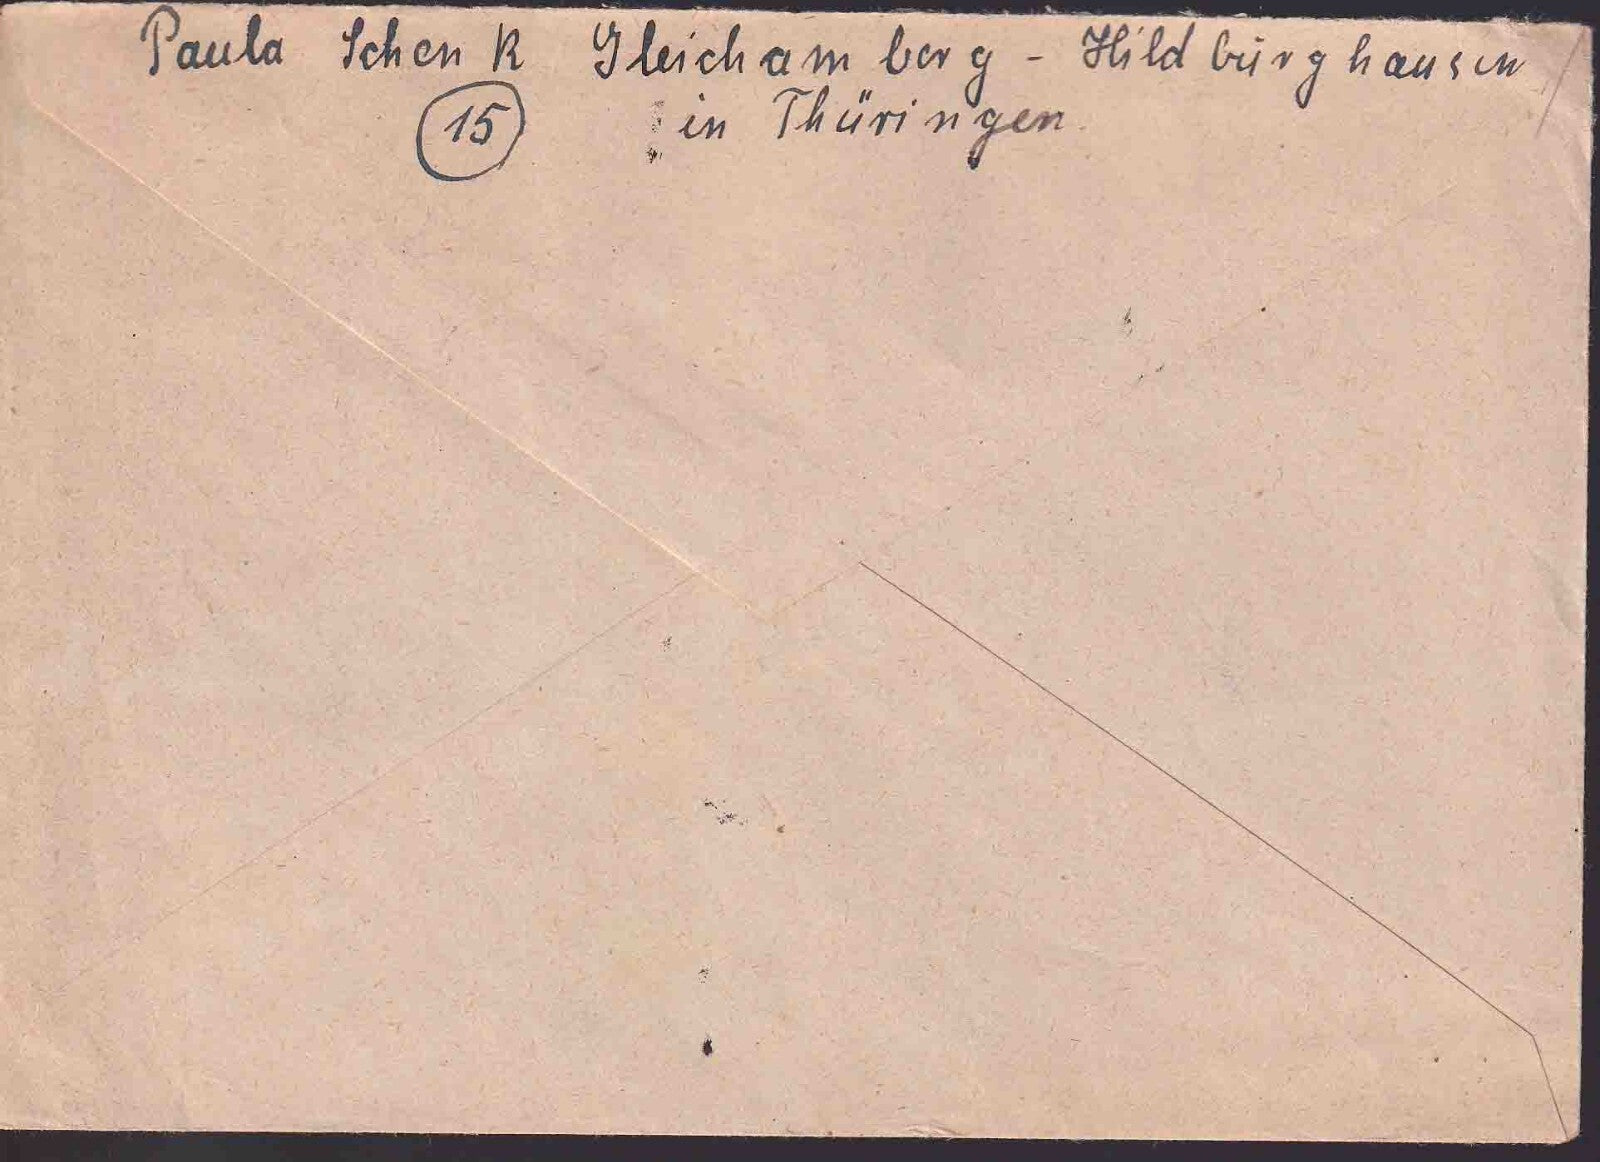 Paula Schenk Gleichamberg - Hildburghausen
(15) in Thüringen